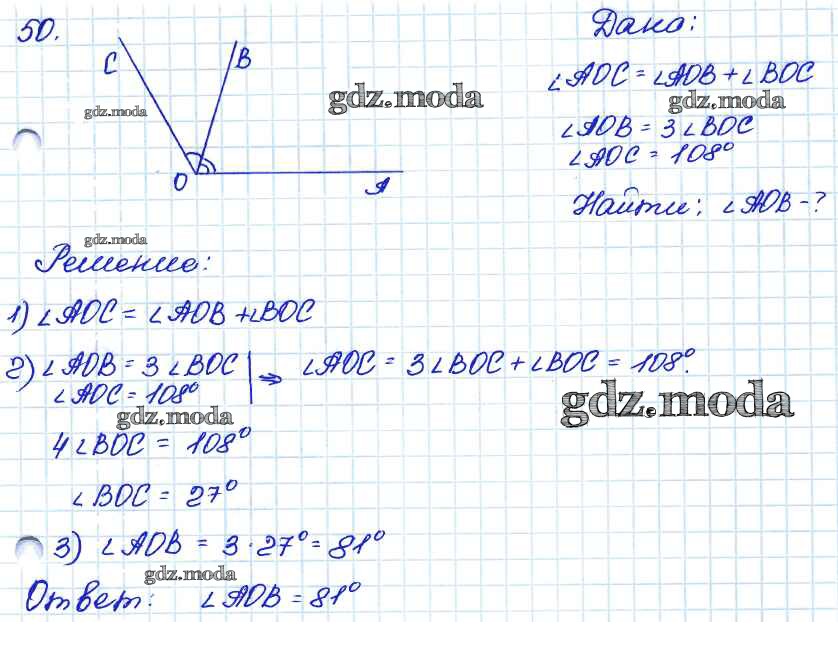 50.
C
B
O
A
gdz.moda
gdz.moda
Дано:
∠AOC = ∠AOB + ∠BOC
gdz.moda
∠AOB = 3∠BOC
∠AOC = 108°
Найти: ∠AOB - ?
gdz.moda
Решение:
1) ∠AOC = ∠AOB + ∠BOC
2) ∠AOB = 3∠BOC | ⇒ ∠AOC = 3∠BOC + ∠BOC = 108°.
∠AOC = 108°
gdz.moda
gdz.moda
4∠BOC = 108°
∠BOC = 27°
3) ∠AOB = 3·27° = 81°
gdz.moda
Ответ: ∠AOB = 81°